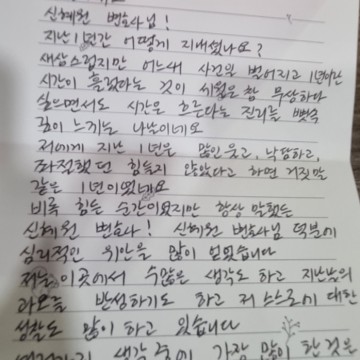 신혜원 변호사님!
지난 1년간 어떻게 지내셨나요?
새삼스럽지만 어느새 사건을 벌어지고 1년이란
시간이 흘렀다는 것이 세월은 참 무상하다
싶으면서도 시간은 흐른다는 진리를 뼛속
깊이 느끼는 나날이네요
저에게 지난 1년은 많이 웃고, 낙담하고,
좌절했던 힘들지 않았다고 하면 거짓말
같은 1년이였네요
비록 힘든 순간이였지만 항상 말했듯
신혜원 변호사! 신혜원 변호사님 덕분에
심리적인 위안을 많이 얻었습니다
저는 이곳에서 수많은 생각도 하고 지난날의
과오를 반성하기도 하고 저 스스로에 대한
성찰도 많이 하고 있습니다
생각 중에 가장 많이 한 것은